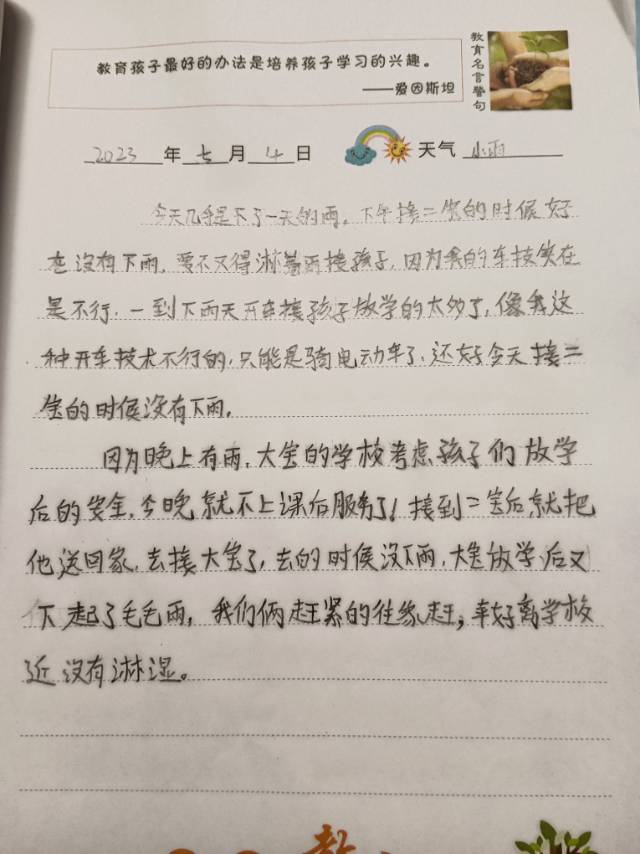 教育孩子最好的办法是培养孩子学习的兴趣。
——爱因斯坦
教育名言警句
2023年七月4日 天气 小雨
今天几乎是下了一天的雨。下午接二宝的时候好
在没有下雨，要不又得淋着雨接孩子，因为我的车技实在
是不行，一到下雨天开车接孩子放学的太多了，像我这
种开车技术不行的，只能是骑电动车了，还好今天接二
宝的时候没有下雨。
因为晚上有雨，大宝的学校考虑孩子们放学
后的安全，今晚就不上课后服务了！接到二宝后，就把
他送回家，去接大宝了，去的时候没下雨，大宝放学后又
下起了毛毛雨，我们俩赶紧的往家赶，幸好离学校
近没有淋湿。